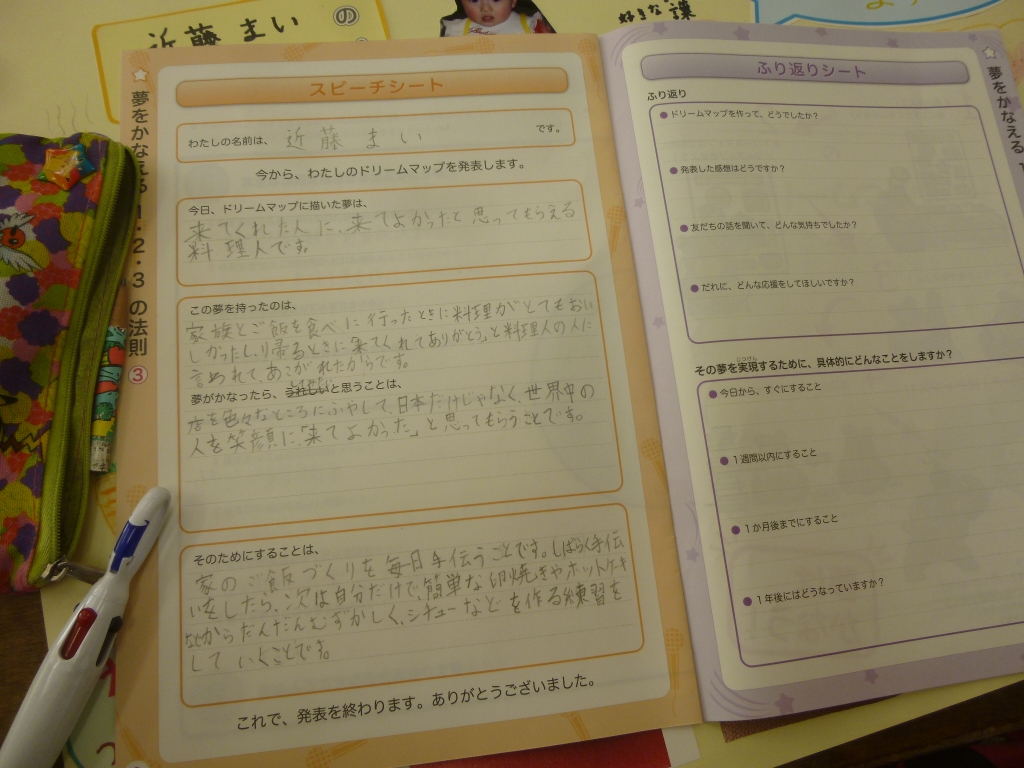 近藤まい の
好きな課
夢をかなえる1・2・3の法則③
スピーチシート
わたしの名前は、近藤まい です。
今から、わたしのドリームマップを発表します。
今日、ドリームマップに描いた夢は、
来てくれた人に、来てよかったと思ってもらえる
料理人です。
この夢を持ったのは、
家族とご飯を食べに行ったときに料理がとてもおい
しかったし、帰るときに「来てくれてありがとう」と料理人の人に
言われて、あこがれたからです。
夢がかなったら、うれしいと思うことは、
店を色々なところにふやして、日本だけじゃなく、世界中の
人を笑顔に、「来てよかった」と思ってもらうことです。
そのためにすることは、
家のご飯づくりを毎日手伝うことです。しばらく手伝
いをしたら、次は自分だけで、簡単な卵焼きやホットケーキ
などからだんだんむずかしく、シチューなどを作る練習を
していくことです。
これで、発表を終わります。ありがとうございました。
ふり返りシート
ふり返り
●ドリームマップを作って、どうでしたか？
●発表した感想はどうですか？
●友だちの話を聞いて、どんな気持ちでしたか？
●だれに、どんな応援をしてほしいですか？
その夢を実現するために、具体的にどんなことをしますか？
じつげん
●今日から、すぐにすること
●1週間以内にすること
●1か月後までにすること
●1年後にはどうなっていますか？
夢をかなえる